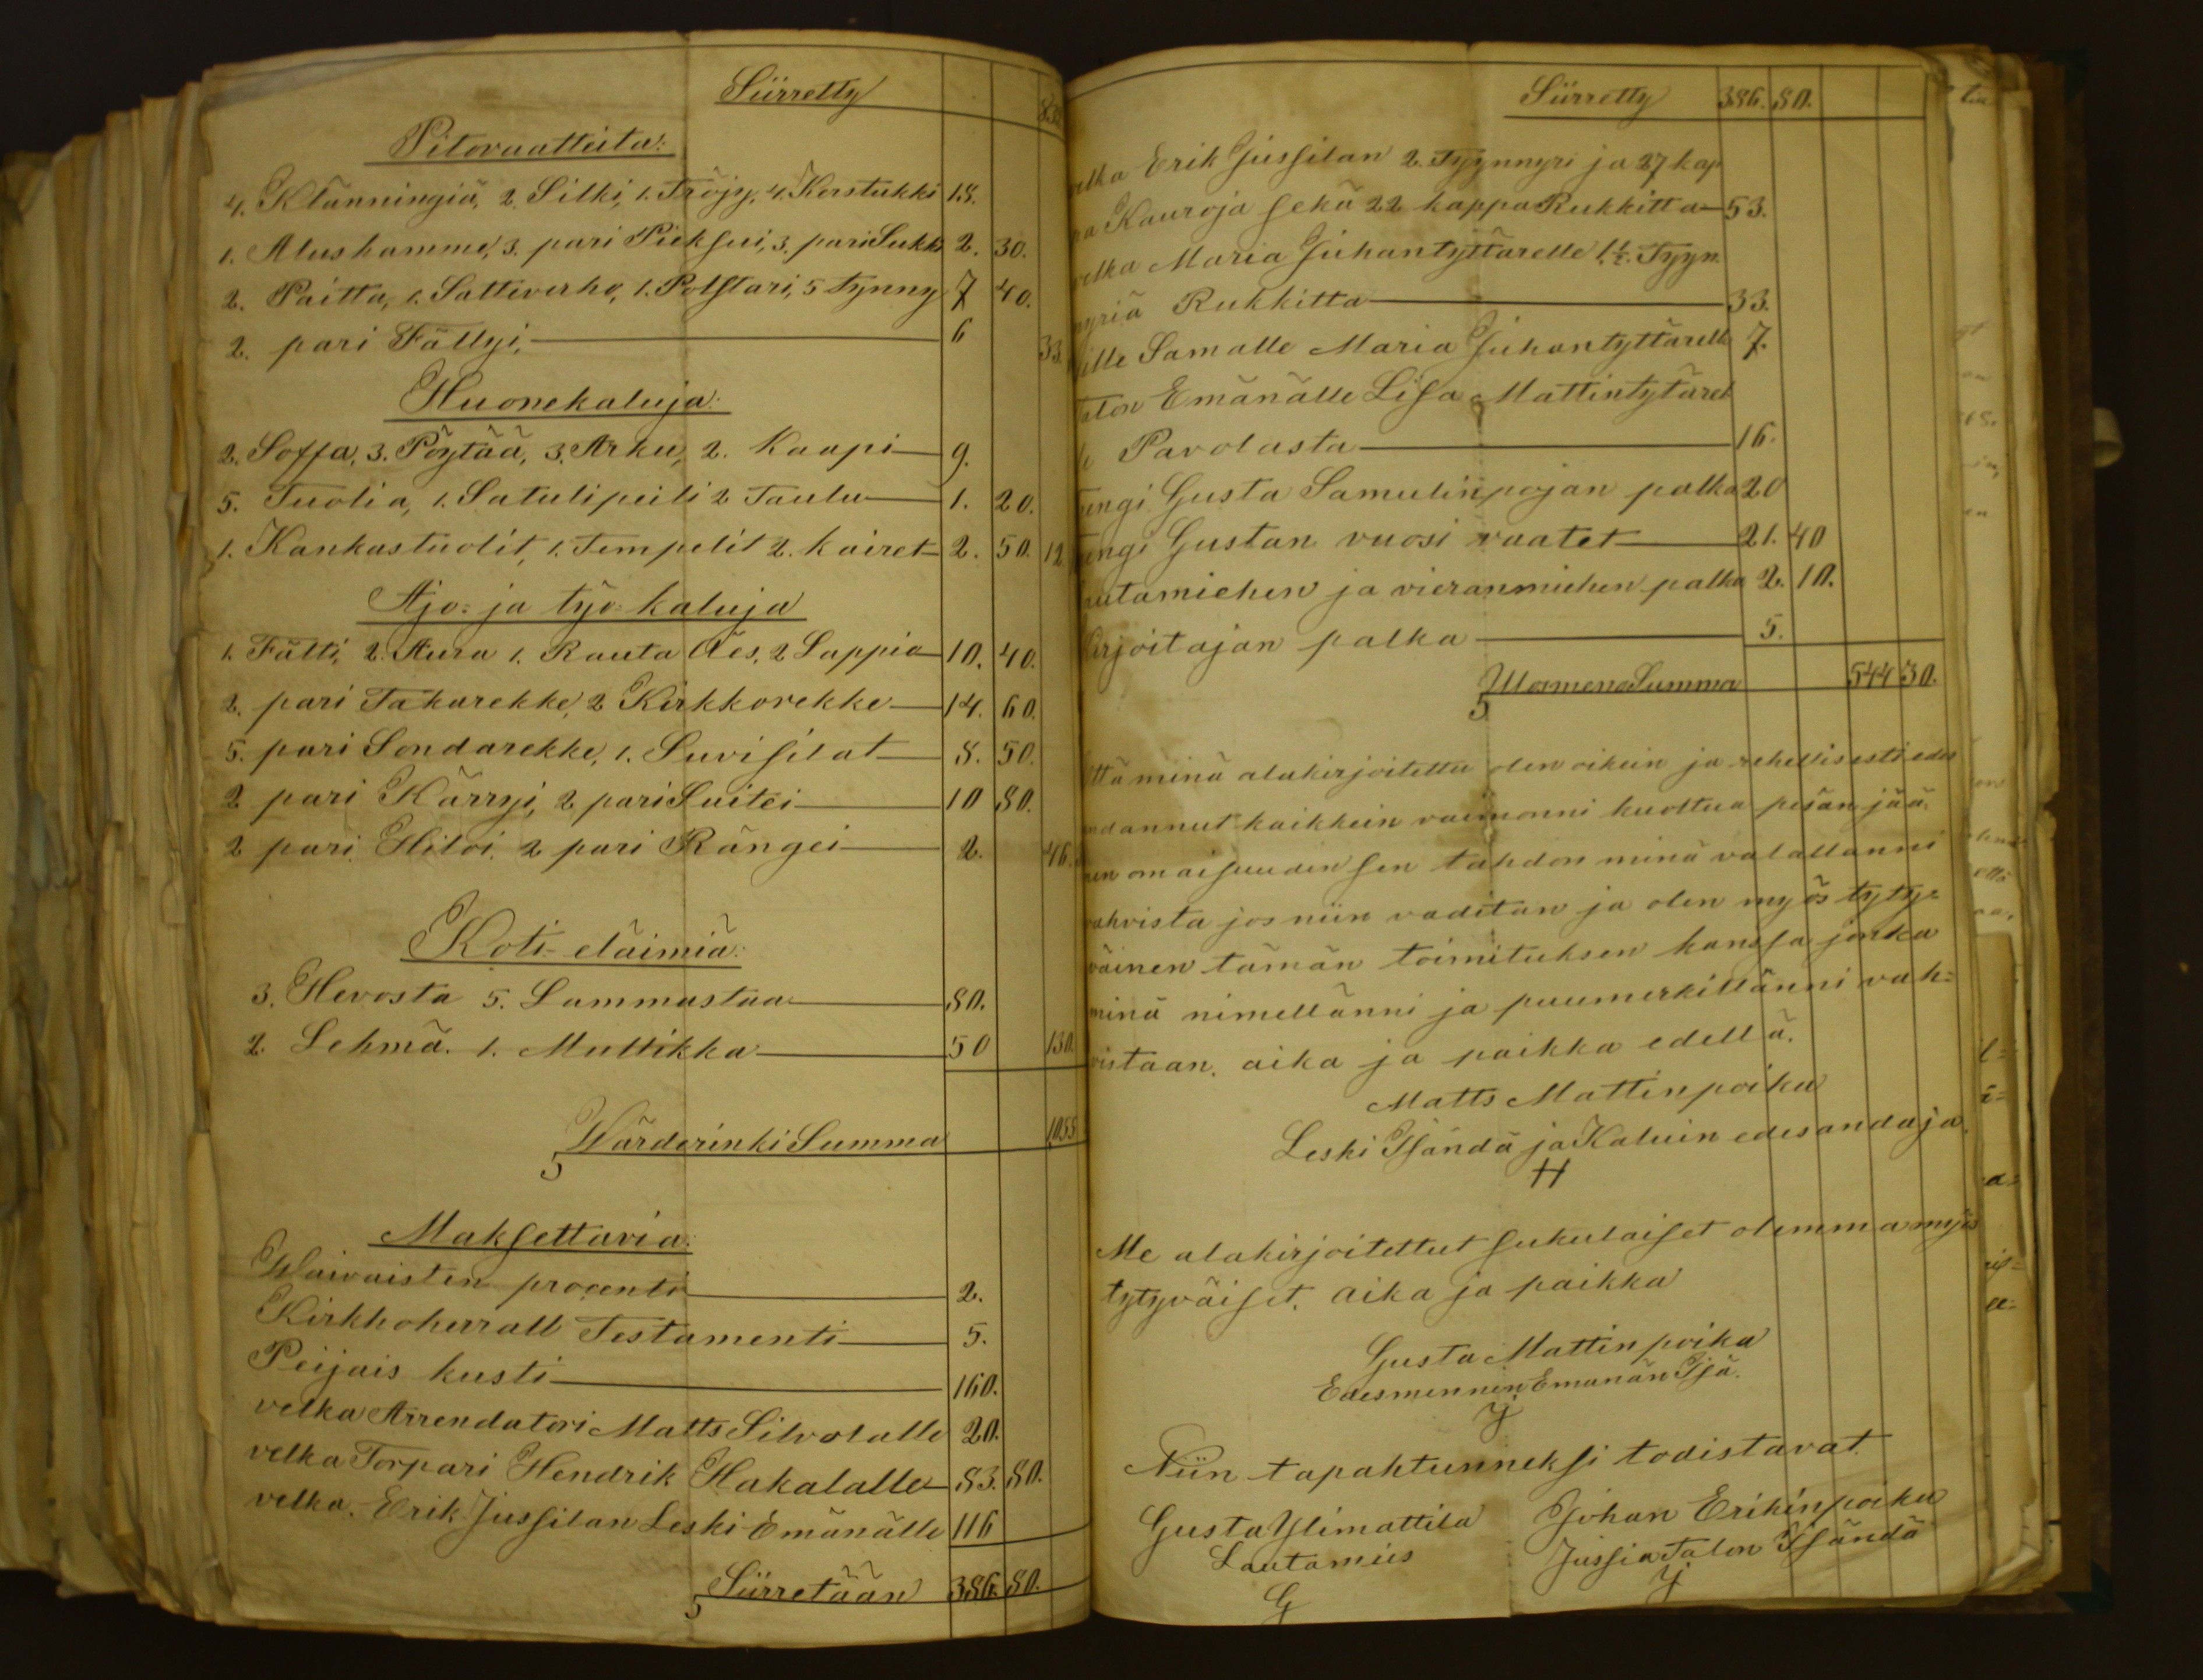 Siirretty
Pitovaatteita:
4. Klänningiä, 2. Silki, 1. Tröjy, 4. Korstukki 18.
1. Alushamme, 3. pari Pieksui, 3. pari Sukki 2. 30.
2. Paitta, 1. Sattiverho, 1. Polstari, 5 tynny 7 40.
2. pari Fällyi, 6 33.
Huonekaluja:
2. Soffa, 3. Pöytää, 3. Arku, 2. Kaapi 9.
5. Tuolia, 1. Satulipeili 2 Taulu 1. 20.
1. Kankastuolit, 1. Tempelit 2. kairet 2. 50. 12
Ajo= ja työ=kaluja
1. Fälti, 2. Aura 1. Rauta Äes, 2 Lappia 10. 40.
2. pari Takarekke, 2 Kirkkorekke 14. 60.
5. pari Sondarekke, 1. Suvisilat 8. 50.
2 pari Kärryi, 2 pari Suitei 10 80.
2 pari Hiloi. 2 pari Rängei 2. 46.
Koti=eläimiä:
3. Hevosta 5. Lammastaa 80.
2. Lehmä. 1. Mullikka 50 130.
Wärderinki Summa 1055
Maksettavia:
Waivaisten procenti 2.
Kirkhoherrall Testamenti 5.
Peijais kusti 160.
velka Arrendatori Matts Silvolalle 20.
velka Torpari Hendrik Hakalalle 83. 80.
velka. Erik Jussilan Leski Emänälle 116
Siirretään 386. 80.
Siirretty 386. 80.
velka Erik Jussilan 2. Tyynnyri ja 27 kap
pa Kauroja sekä 22 kappa Rukkitta 53.
velka Maria Juhantyttärelle 1.½. Tyyn
nyriä Rukkitta 33.
Samalle Maria Juhantyttärelle 7.
Talon Emänälle Lisa Mattintytärel
le Pavolasta 16.
Rengi Gusta Samulinpojan palka 20
Rengi Gustan vuosi vaatet 21. 40
Lautamiehen ja vieranmiehen palka 2. 10.
Kirjoitajan palka 5.
Ulosmeno Summa 544 30.
Että minä alakirjoitettu olen oikein ja rehellisesti edes
andannut kaikkein vaimonni kuoltua pesän jää
nen omaisuuden sen tahdon minä valallanni
vahvista jos niin vaditan ja olen myös tyty=
väinen tämän toimituksen kanssa jonka
minä nimellänni ja puumerkillänni vah=
vistaan. aika ja paikka edellä.
Matts Mattinpoika
Leski Isändä ja Kaluin edesandaja.
H
Me alakirjoitettut sukulaiset olemma myös
tytyväiset. aika ja paikka
Gusta Mattinpoika
Edesmennen Emänän Isä.
Niin tapahtunneksi todistavat.
Gusta Ylimattila Johan Erikinpoika
Lautamies Jussia Talon Isändä
G